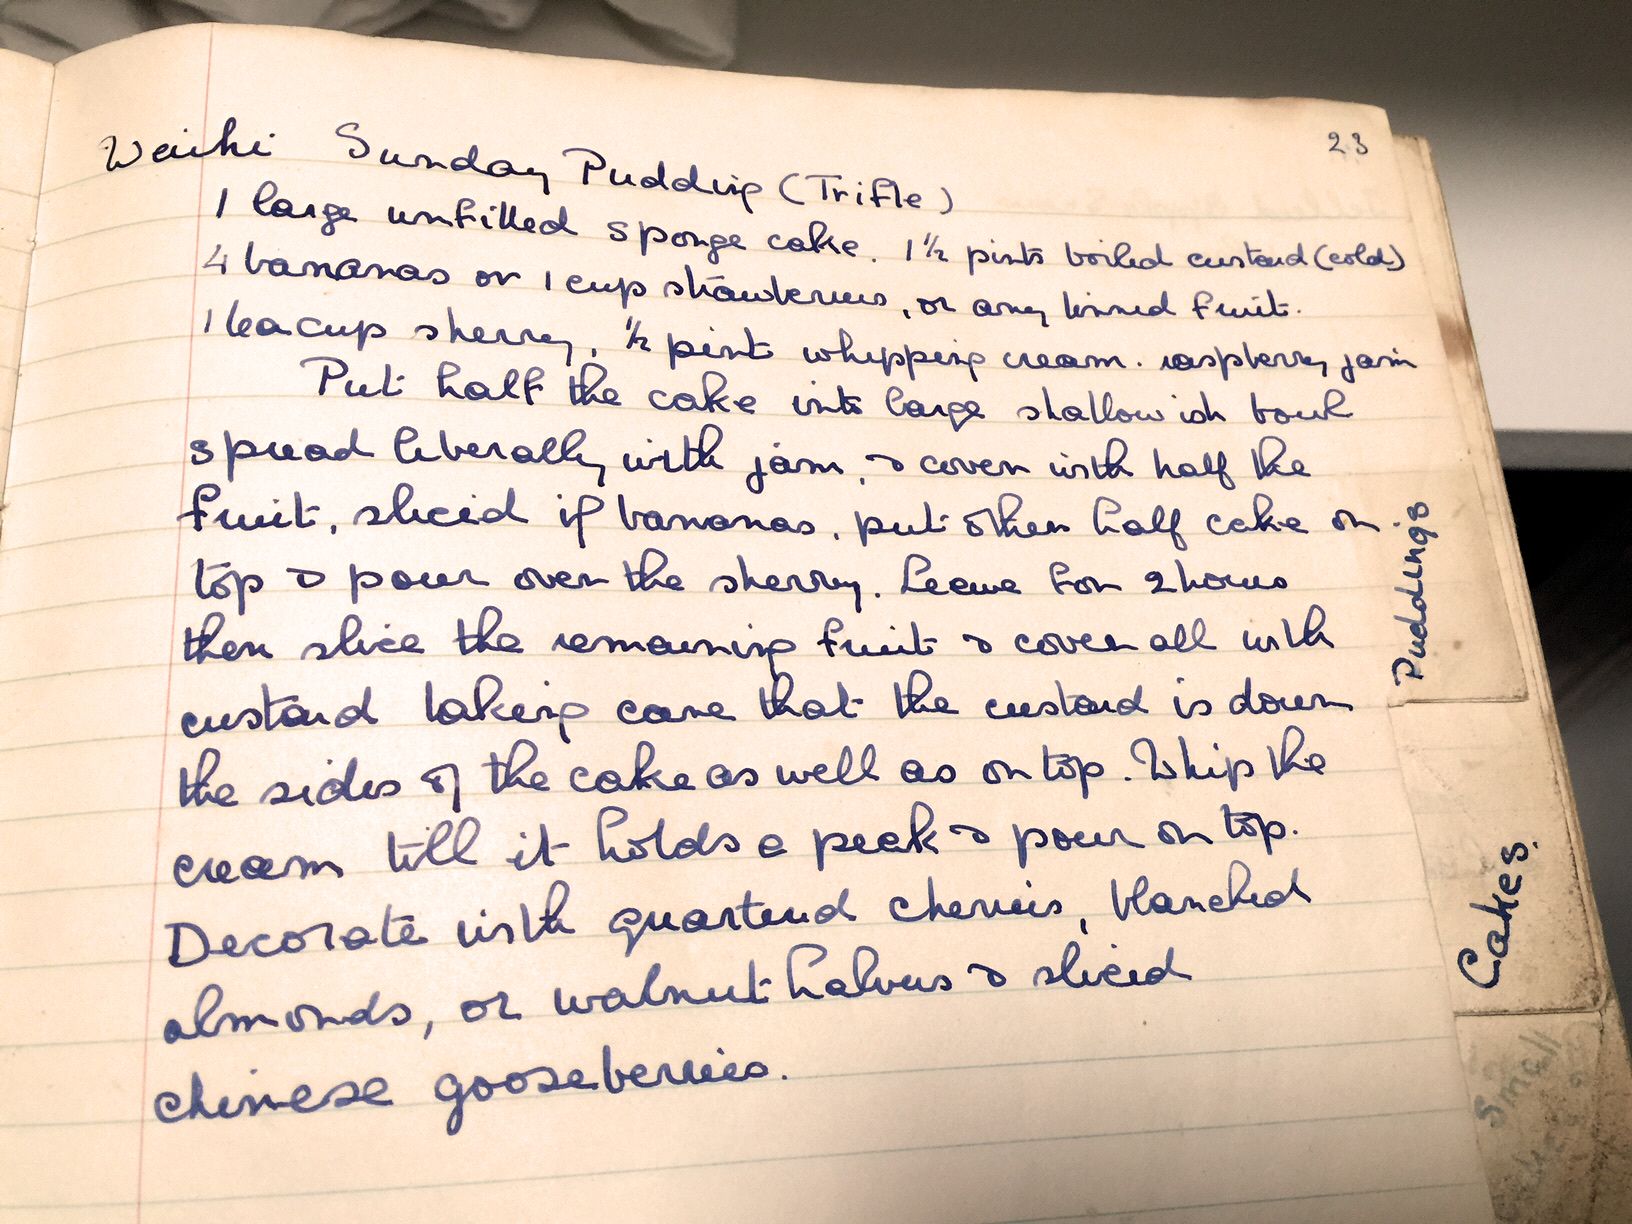 23
Waihi Sunday Pudding (Trifle)
1 large unfilled sponge cake. 1½ pints boiled custard (cold)
4 bananas or 1 cup strawberries, or any tinned fruit.
1 teacup sherry, ½ pint whipping cream. raspberry jam
Put half the cake into large shallowish bowl
spread liberally with jam, & cover with half the
fruit, sliced if bananas, put other half cake on
top & pour over the sherry. Leave for 2 hours
then slice the remaining fruit & cover all with
custard taking care that the custard is down
the sides of the cake as well as on top. Whip the
cream till it holds a peak & pour on top.
Decorate with quartered cherries, blanched
almonds, or walnut halves & sliced
chinese gooseberries.
Puddings
Cakes.
Small